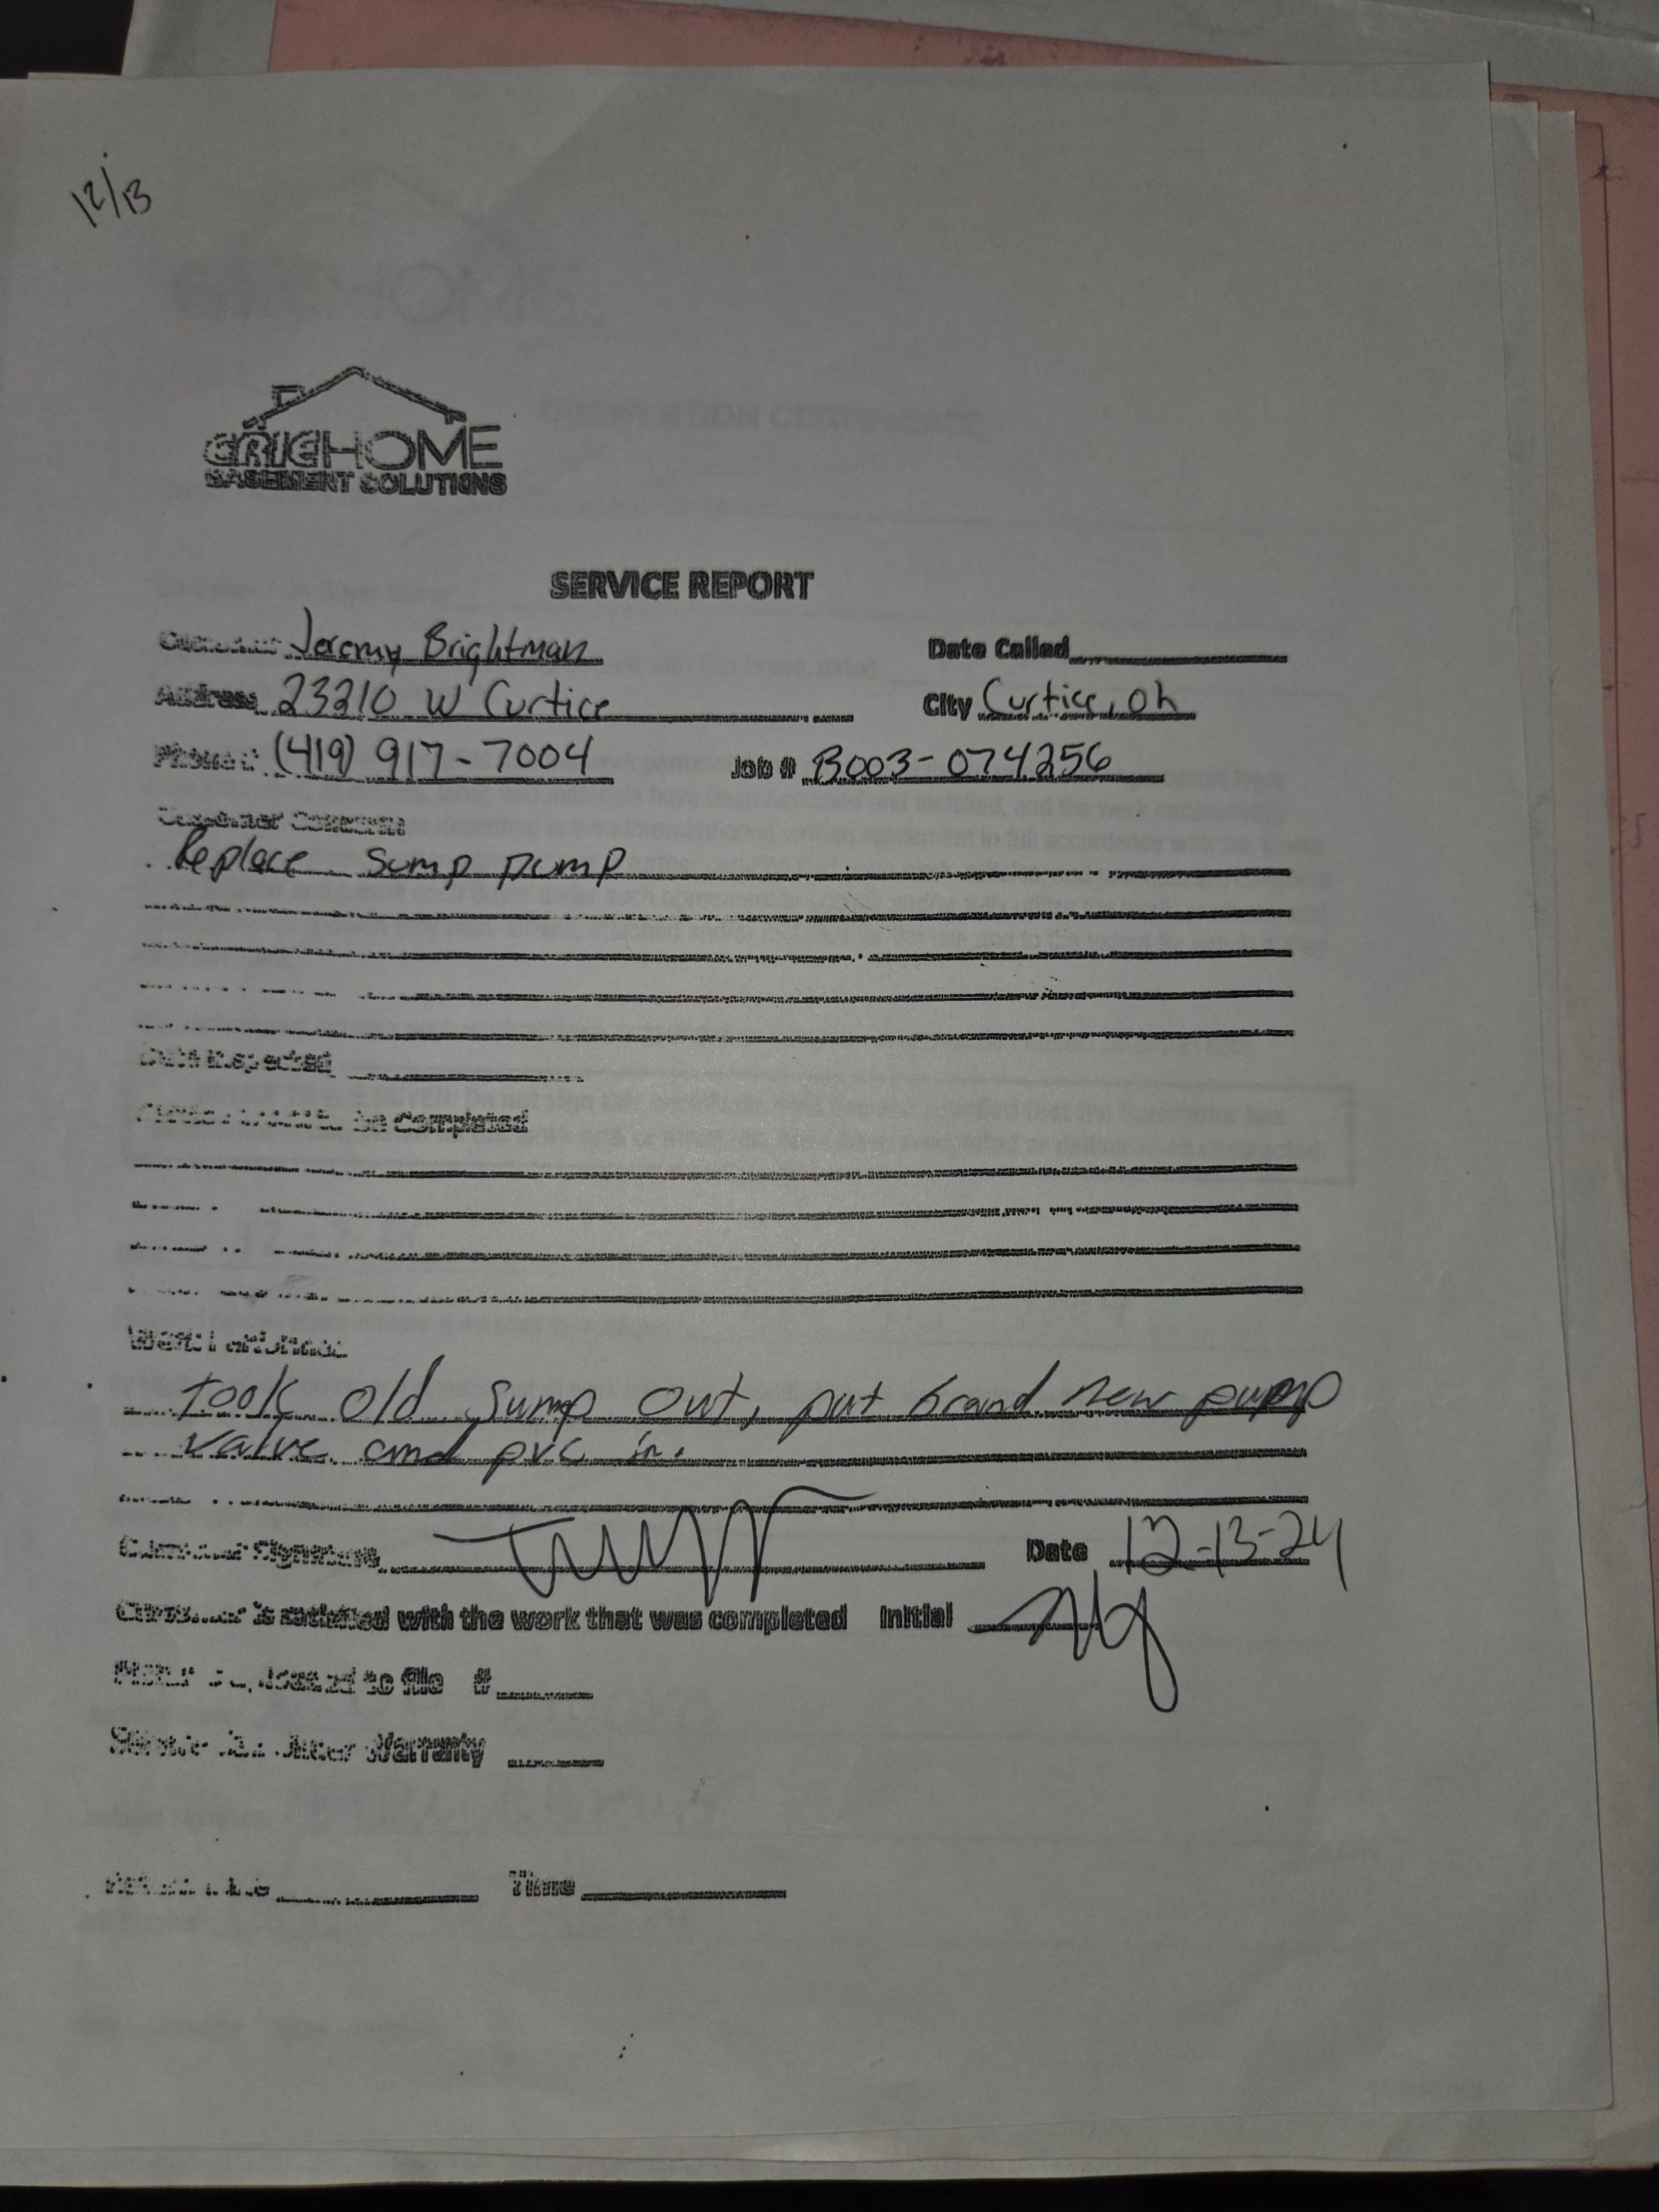 12/13
ERIEHOME
BASEMENT SOLUTIONS
SERVICE REPORT
Customer Jeremy Brightman Date Called
Address 23210 W Curtice City Curtice, Oh
Phone #: (419) 917-7004 Job # B003-074256
Customer Concern:
Replace sump pump
Date Inspected
to be Completed
Work Performed
took old sump out, put brand new pump
valve and pvc in.
Customer Signature Date 12-13-24
Customer is satisfied with the work that was completed Initial
to file #
Service Under Warranty
Time